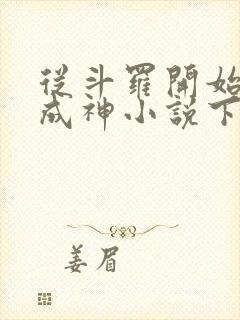 從斗羅開始
成神小說下
姜眉